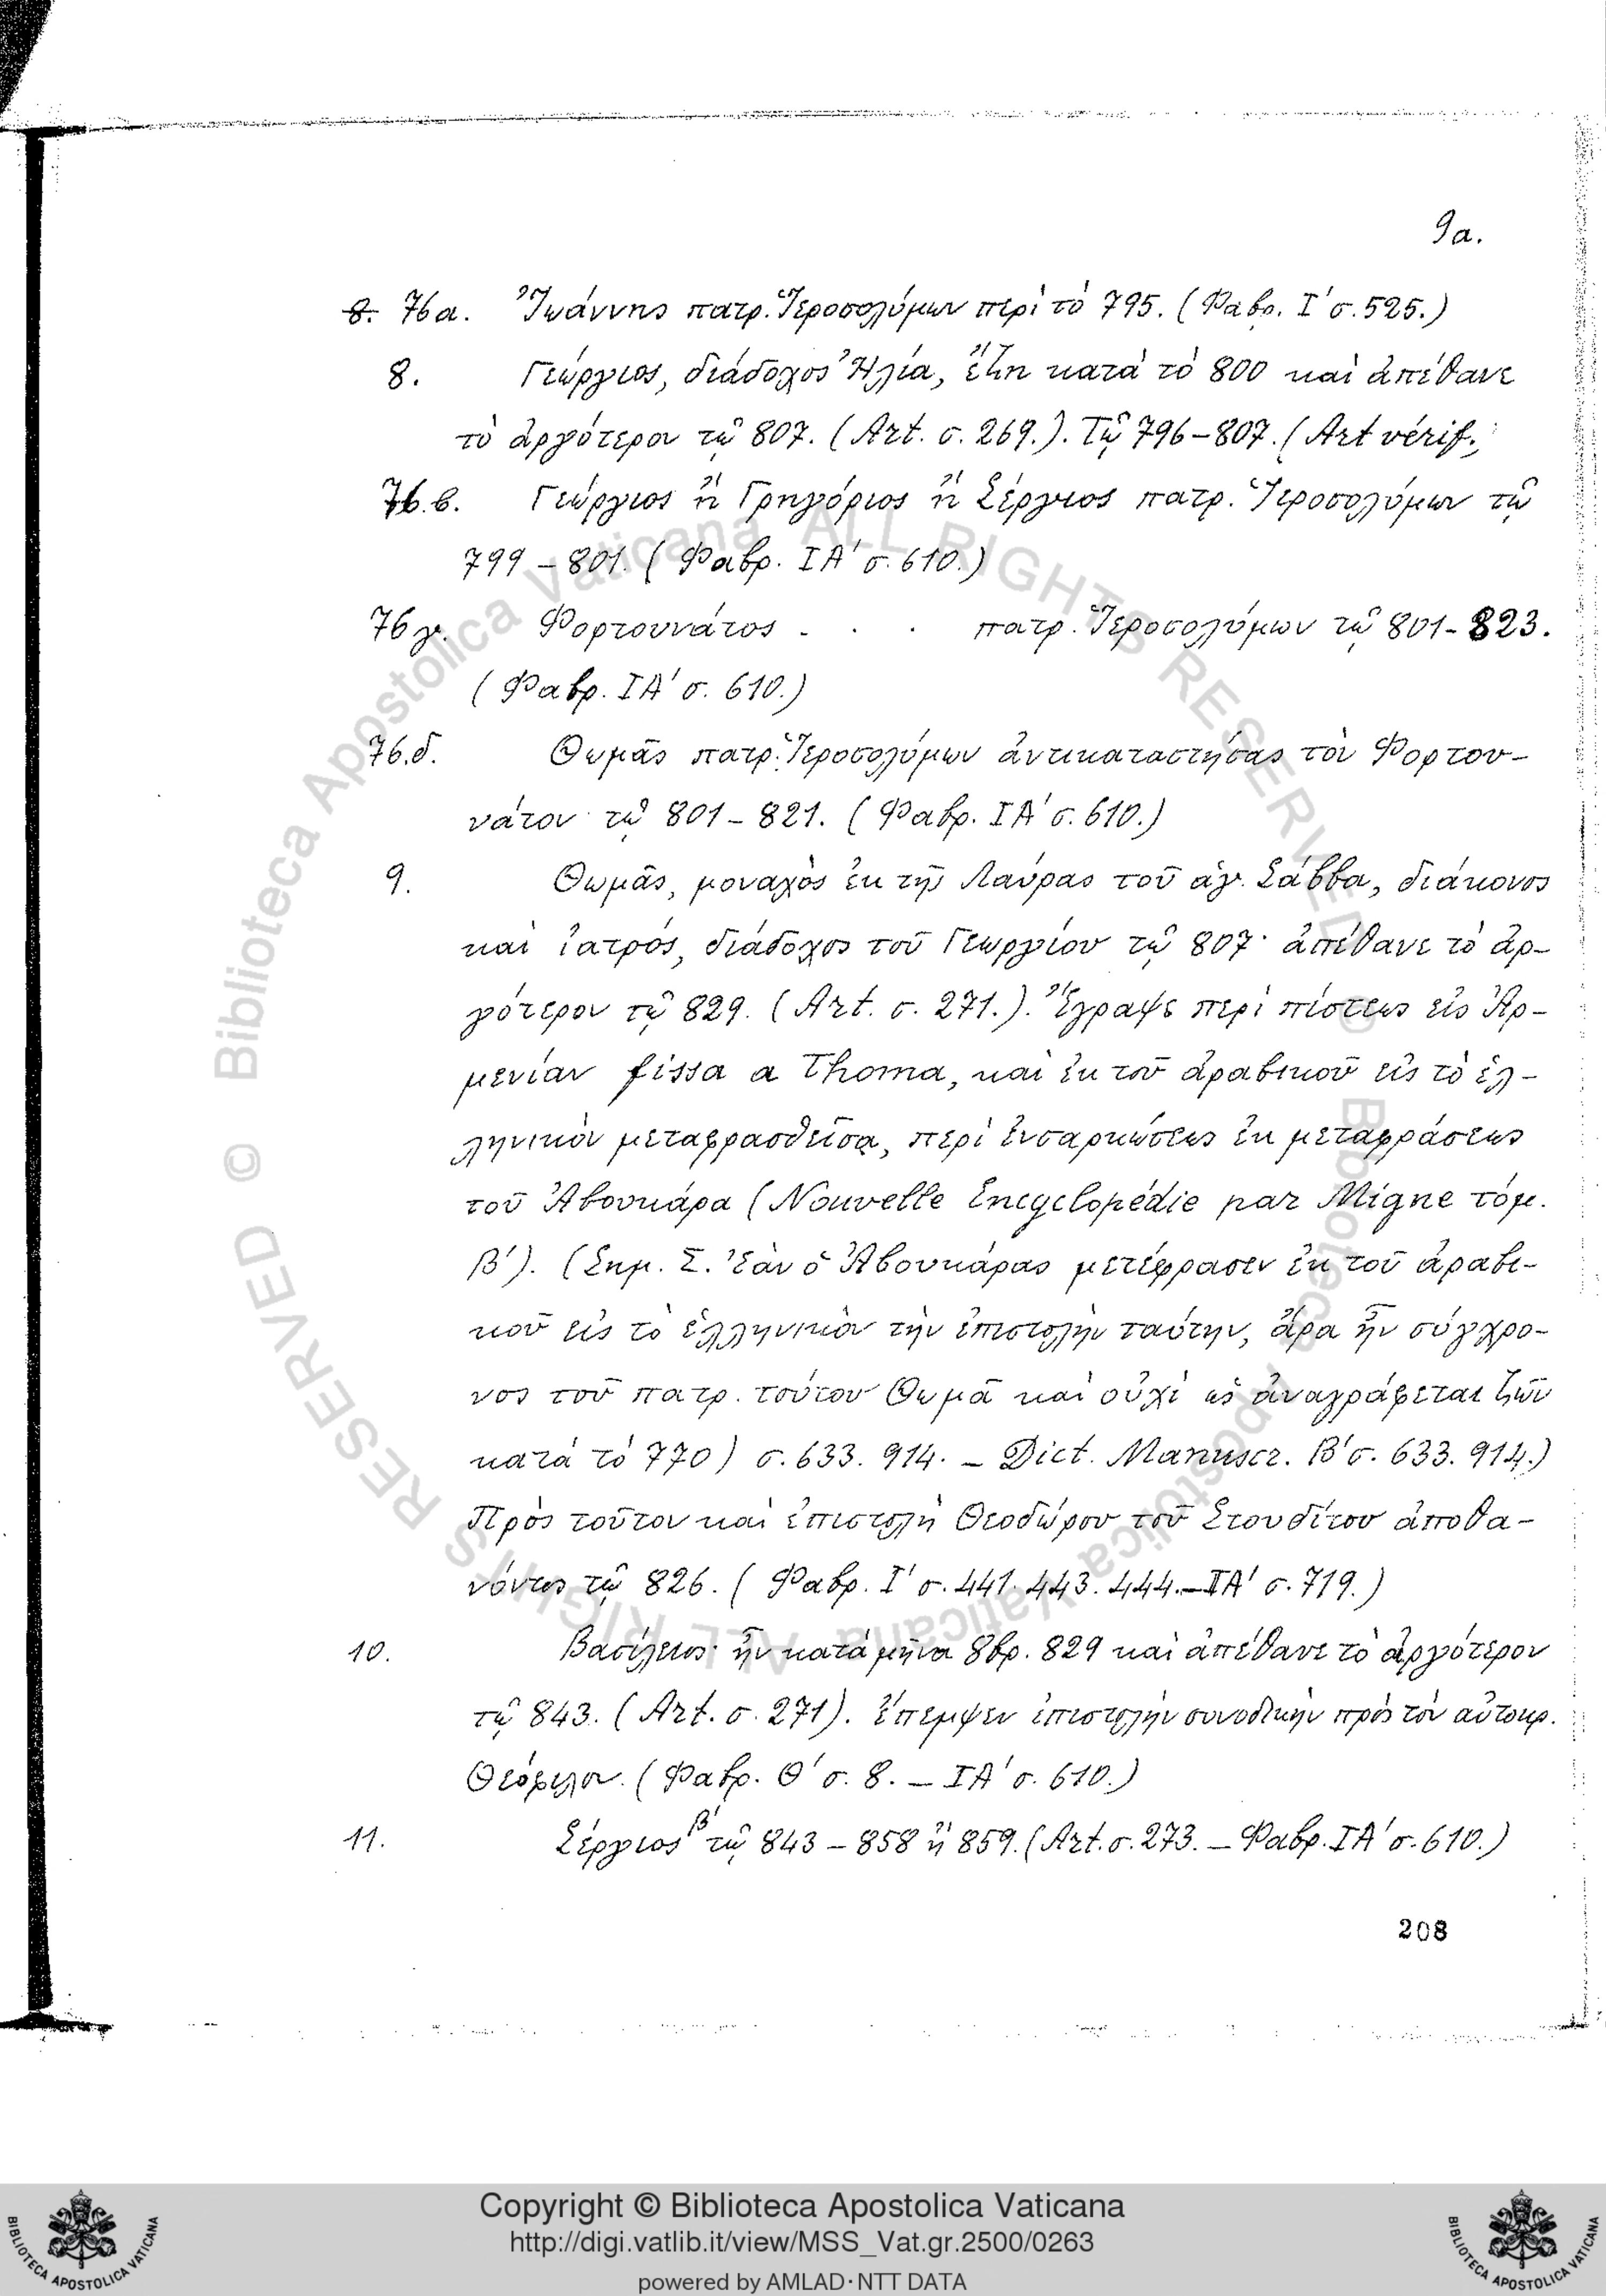 9α.
8. 76α. Ἰωάννης πατρ. Ἱεροσολύμων περὶ τὸ 795. (Φαβρ. Ι΄ σ. 525.)
8. Γεώργιος, διάδοχος Ἠλία, ἔζη κατὰ τὸ 800 καὶ ἀπέθανε
τὸ ἀργότερον τῷ 807. (Art. σ. 269.). Τῷ 796–807. (Art vérif.)
76.β. Γεώργιος ἢ Γρηγόριος ἢ Σέργιος πατρ. Ἱεροσολύμων τῷ
799 – 801. (Φαβρ. ΙΑ΄ σ. 610.)
76γ. Φορτουνάτος . . . πατρ. Ἱεροσολύμων τῷ 801–823.
(Φαβρ. ΙΑ΄ σ. 610.)
76.δ. Θωμᾶς πατρ. Ἱεροσολύμων ἀντικαταστήσας τὸν Φορτου-
νάτον τῷ 801 – 821. (Φαβρ. ΙΑ΄ σ. 610.)
9. Θωμᾶς, μοναχὸς ἐκ τῆς Λαύρας τοῦ ἁγ. Σάββα, διάκονος
καὶ ἰατρός, διάδοχος τοῦ Γεωργίου τῷ 807· ἀπέθανε τὸ ἀρ-
γότερον τῷ 829. (Art. σ. 271.). Ἔγραψε περὶ πίστεως εἰς Ἀρ-
μενίαν fissa a Thoma, καὶ ἐκ τοῦ ἀραβικοῦ εἰς τὸ ἑλ-
ληνικὸν μεταφρασθεῖσα, περὶ ἐνσαρκώσεως ἐκ μεταφράσεως
τοῦ Ἀβουκάρα (Nouvelle Encyclopédie par Migne τόμ.
β΄). (Σημ. Σ. Ἐὰν ὁ Ἀβουκάρας μετέφρασεν ἐκ τοῦ ἀραβι-
κοῦ εἰς τὸ ἑλληνικὸν τὴν ἐπιστολὴν ταύτην, ἄρα ἦν σύγχρο-
νος τοῦ πατρ. τούτου Θωμᾶ καὶ οὐχὶ ὡς ἀναγράφεται ζῶν
κατὰ τὸ 770) σ. 633. 914. – Dict. Manuscr. Β΄ σ. 633. 914.)
Πρὸς τοῦτον καὶ ἐπιστολὴ Θεοδώρου τοῦ Στουδίτου ἀποθα-
νόντος τῷ 826. (Φαβρ. Ι΄ σ. 441. 443. 444. – ΙΑ΄ σ. 719.)
10. Βασίλειος· ἦν κατὰ μῆνα 8βρ. 829 καὶ ἀπέθανε τὸ ἀργότερον
τῷ 843. (Art. σ. 271). Ἔπεμψεν ἐπιστολὴν συνοδικὴν πρὸς τὸν αὐτοκρ.
Θεόφιλον. (Φαβρ. Θ΄ σ. 8. – ΙΑ΄ σ. 610.)
11. Σέργιος β΄ τῷ 843 – 858 ἢ 859. (Art. σ. 273. – Φαβρ. ΙΑ΄ σ. 610.)
208
© Biblioteca Apostolica Vaticana ALL RIGHTS RESERVED
© Biblioteca Apostolica Vaticana ALL RIGHTS RESERVED
Copyright © Biblioteca Apostolica Vaticana
http://digi.vatlib.it/view/MSS_Vat.gr.2500/0263
powered by AMLAD·NTT DATA
BIBLIOTECA APOSTOLICA VATICANA
BIBLIOTECA APOSTOLICA VATICANA